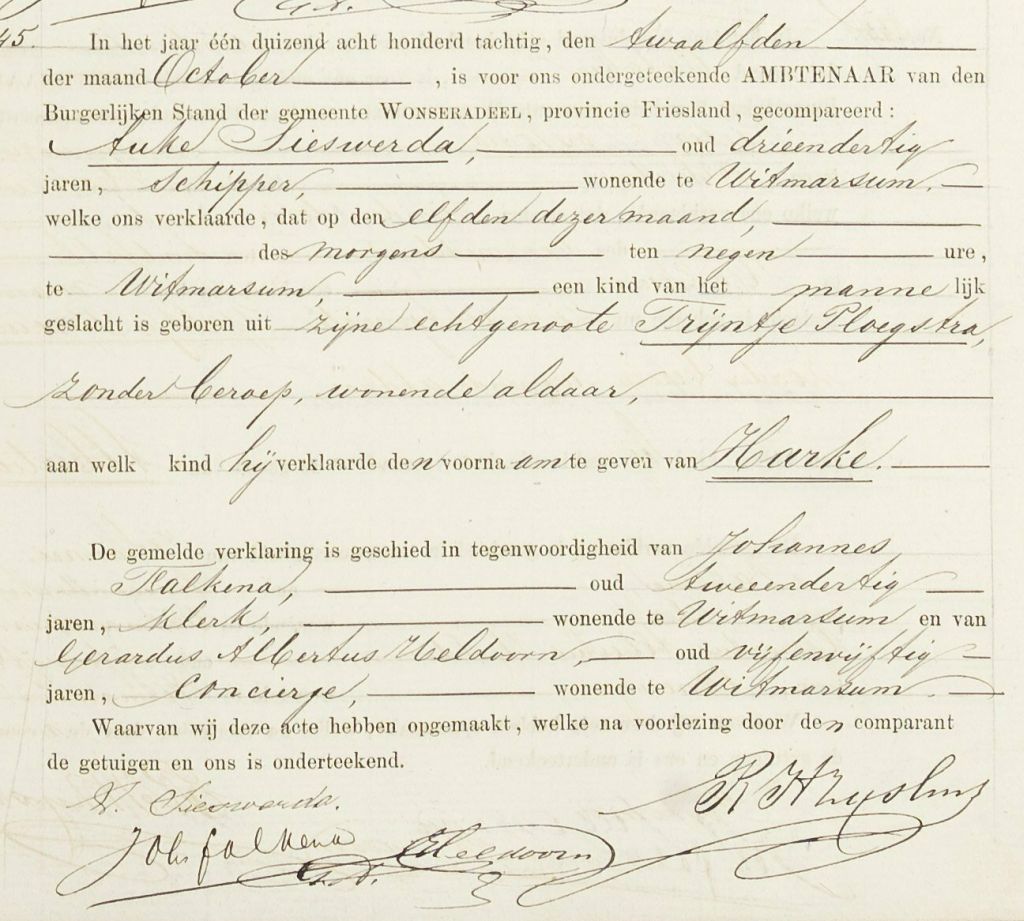 45.
In het jaar één duizend acht honderd tachtig, den twaalfden
der maand October, is voor ons ondergeteekende AMBTENAAR van den
Burgerlijken Stand der gemeente WONSERADEEL, provincie Friesland, gecompareerd:
Auke Sieswerda, oud drieendertig
jaren, Schipper, wonende te Witmarsum.
welke ons verklaarde, dat op den elfden dezer maand,
des morgens ten negen ure,
te Witmarsum, een kind van het mannelijk
geslacht is geboren uit zijne echtgenoote Trijntje Ploegstra,
zonder beroep, wonende aldaar,
aan welk kind hij verklaarde den voornaam te geven van Harke.
De gemelde verklaring is geschied in tegenwoordigheid van Johannes
Falkena, oud tweeendertig
jaren, klerk, wonende te Witmarsum en van
Gerardus Albertus Heldoorn, oud vijfenvijftig
jaren, Concierge, wonende te Witmarsum.
Waarvan wij deze acte hebben opgemaakt, welke na voorlezing door den comparant
de getuigen en ons is onderteekend.
A. Sieswerda.
Johs falkena
Heldoorn